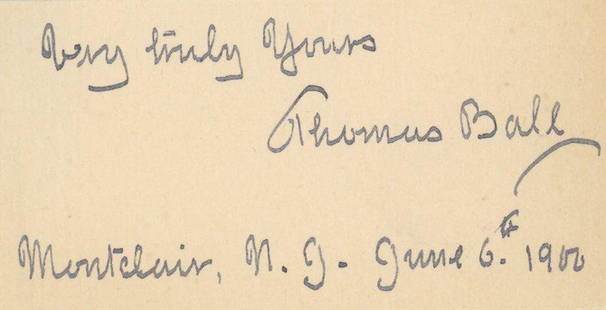 Very truly Yours
Thomas Ball
Montclair, N. J. June 6.th 1900